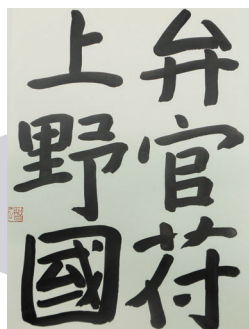 弁官苻
上野國